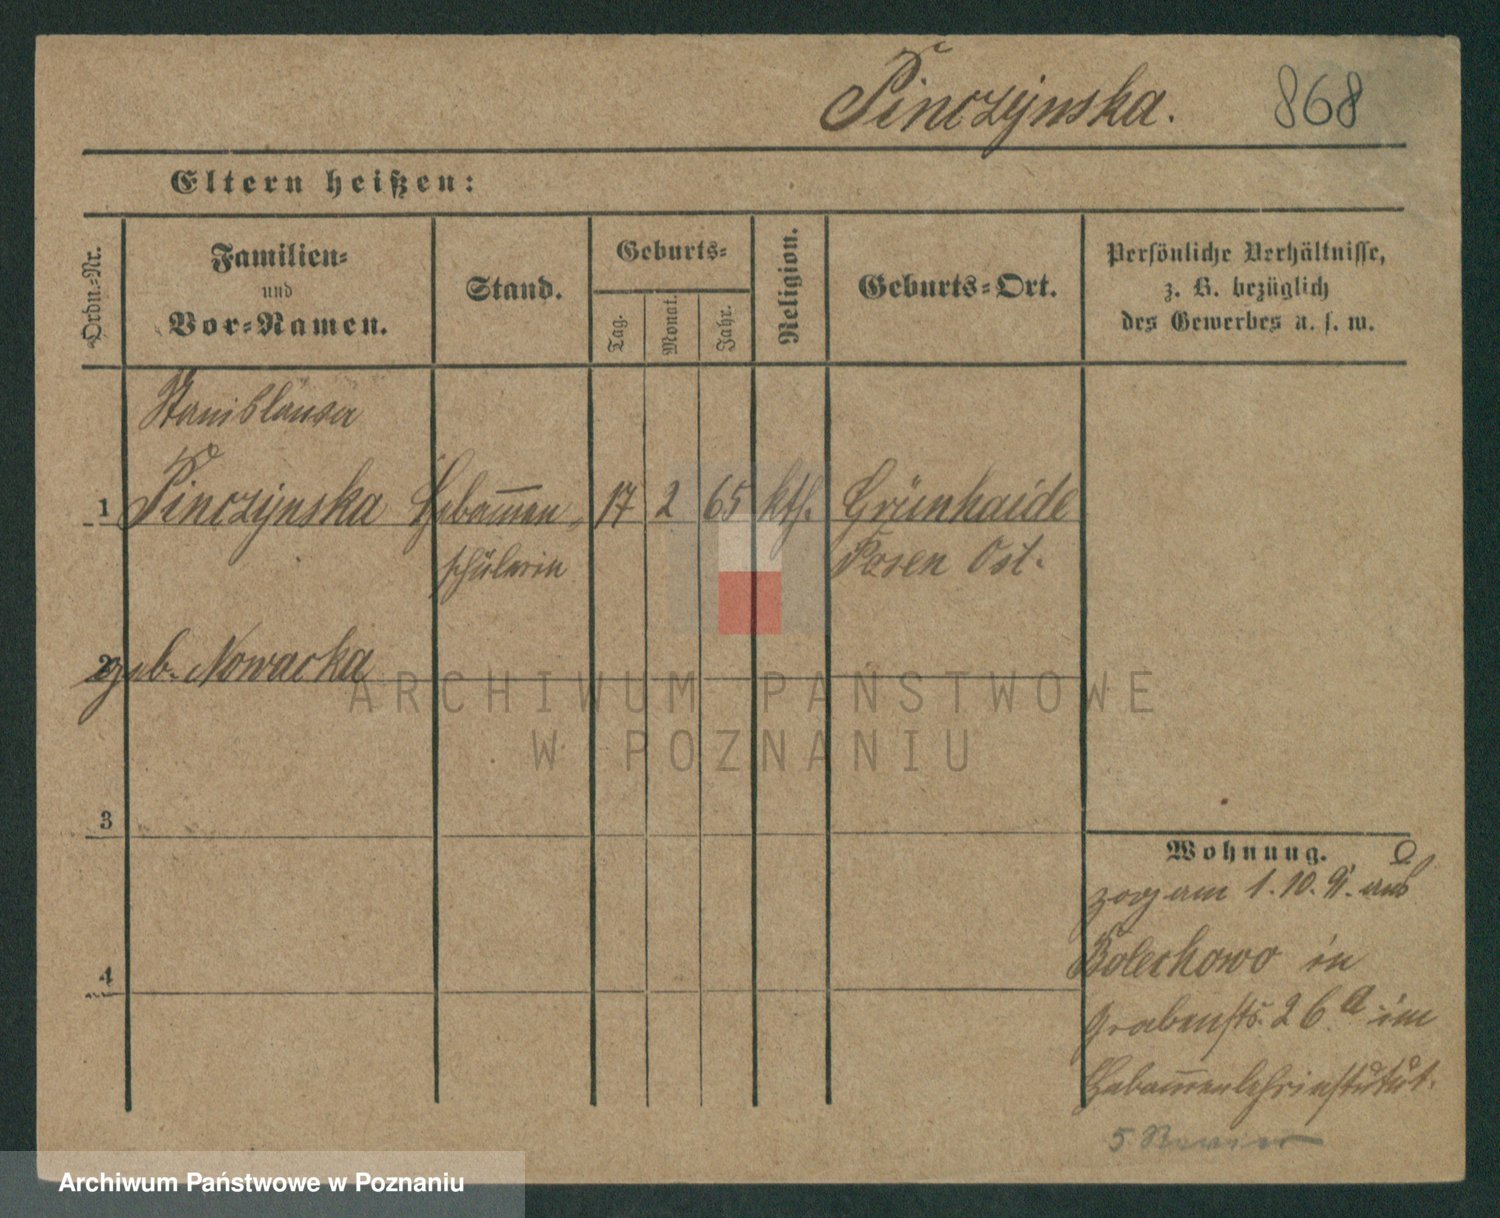 Pinczynska. 868
Eltern heißen:
Ordn.-Nr.
Familien-
und
Vor-Namen.
Stand.
Geburts-
Tag.
Monat.
Jahr.
Religion.
Geburts-Ort.
Persönliche Verhältnisse,
z. B. bezüglich
des Gewerbes u. s. w.
Stanislausa
1 Pinczynska Hebam̅en- 17 2 65 kth. Grünhaide
schülerin Posen Ost.
2 geb. Nowacka
3
4
Wohnung.
zog am 1.10.91. aus
Bolechowo in
Grabenstr. 26a im
Hebam̅enlehrinstitut.
5 Revier
ARCHIWUM PAŃSTWOWE
W POZNANIU
Archiwum Państwowe w Poznaniu